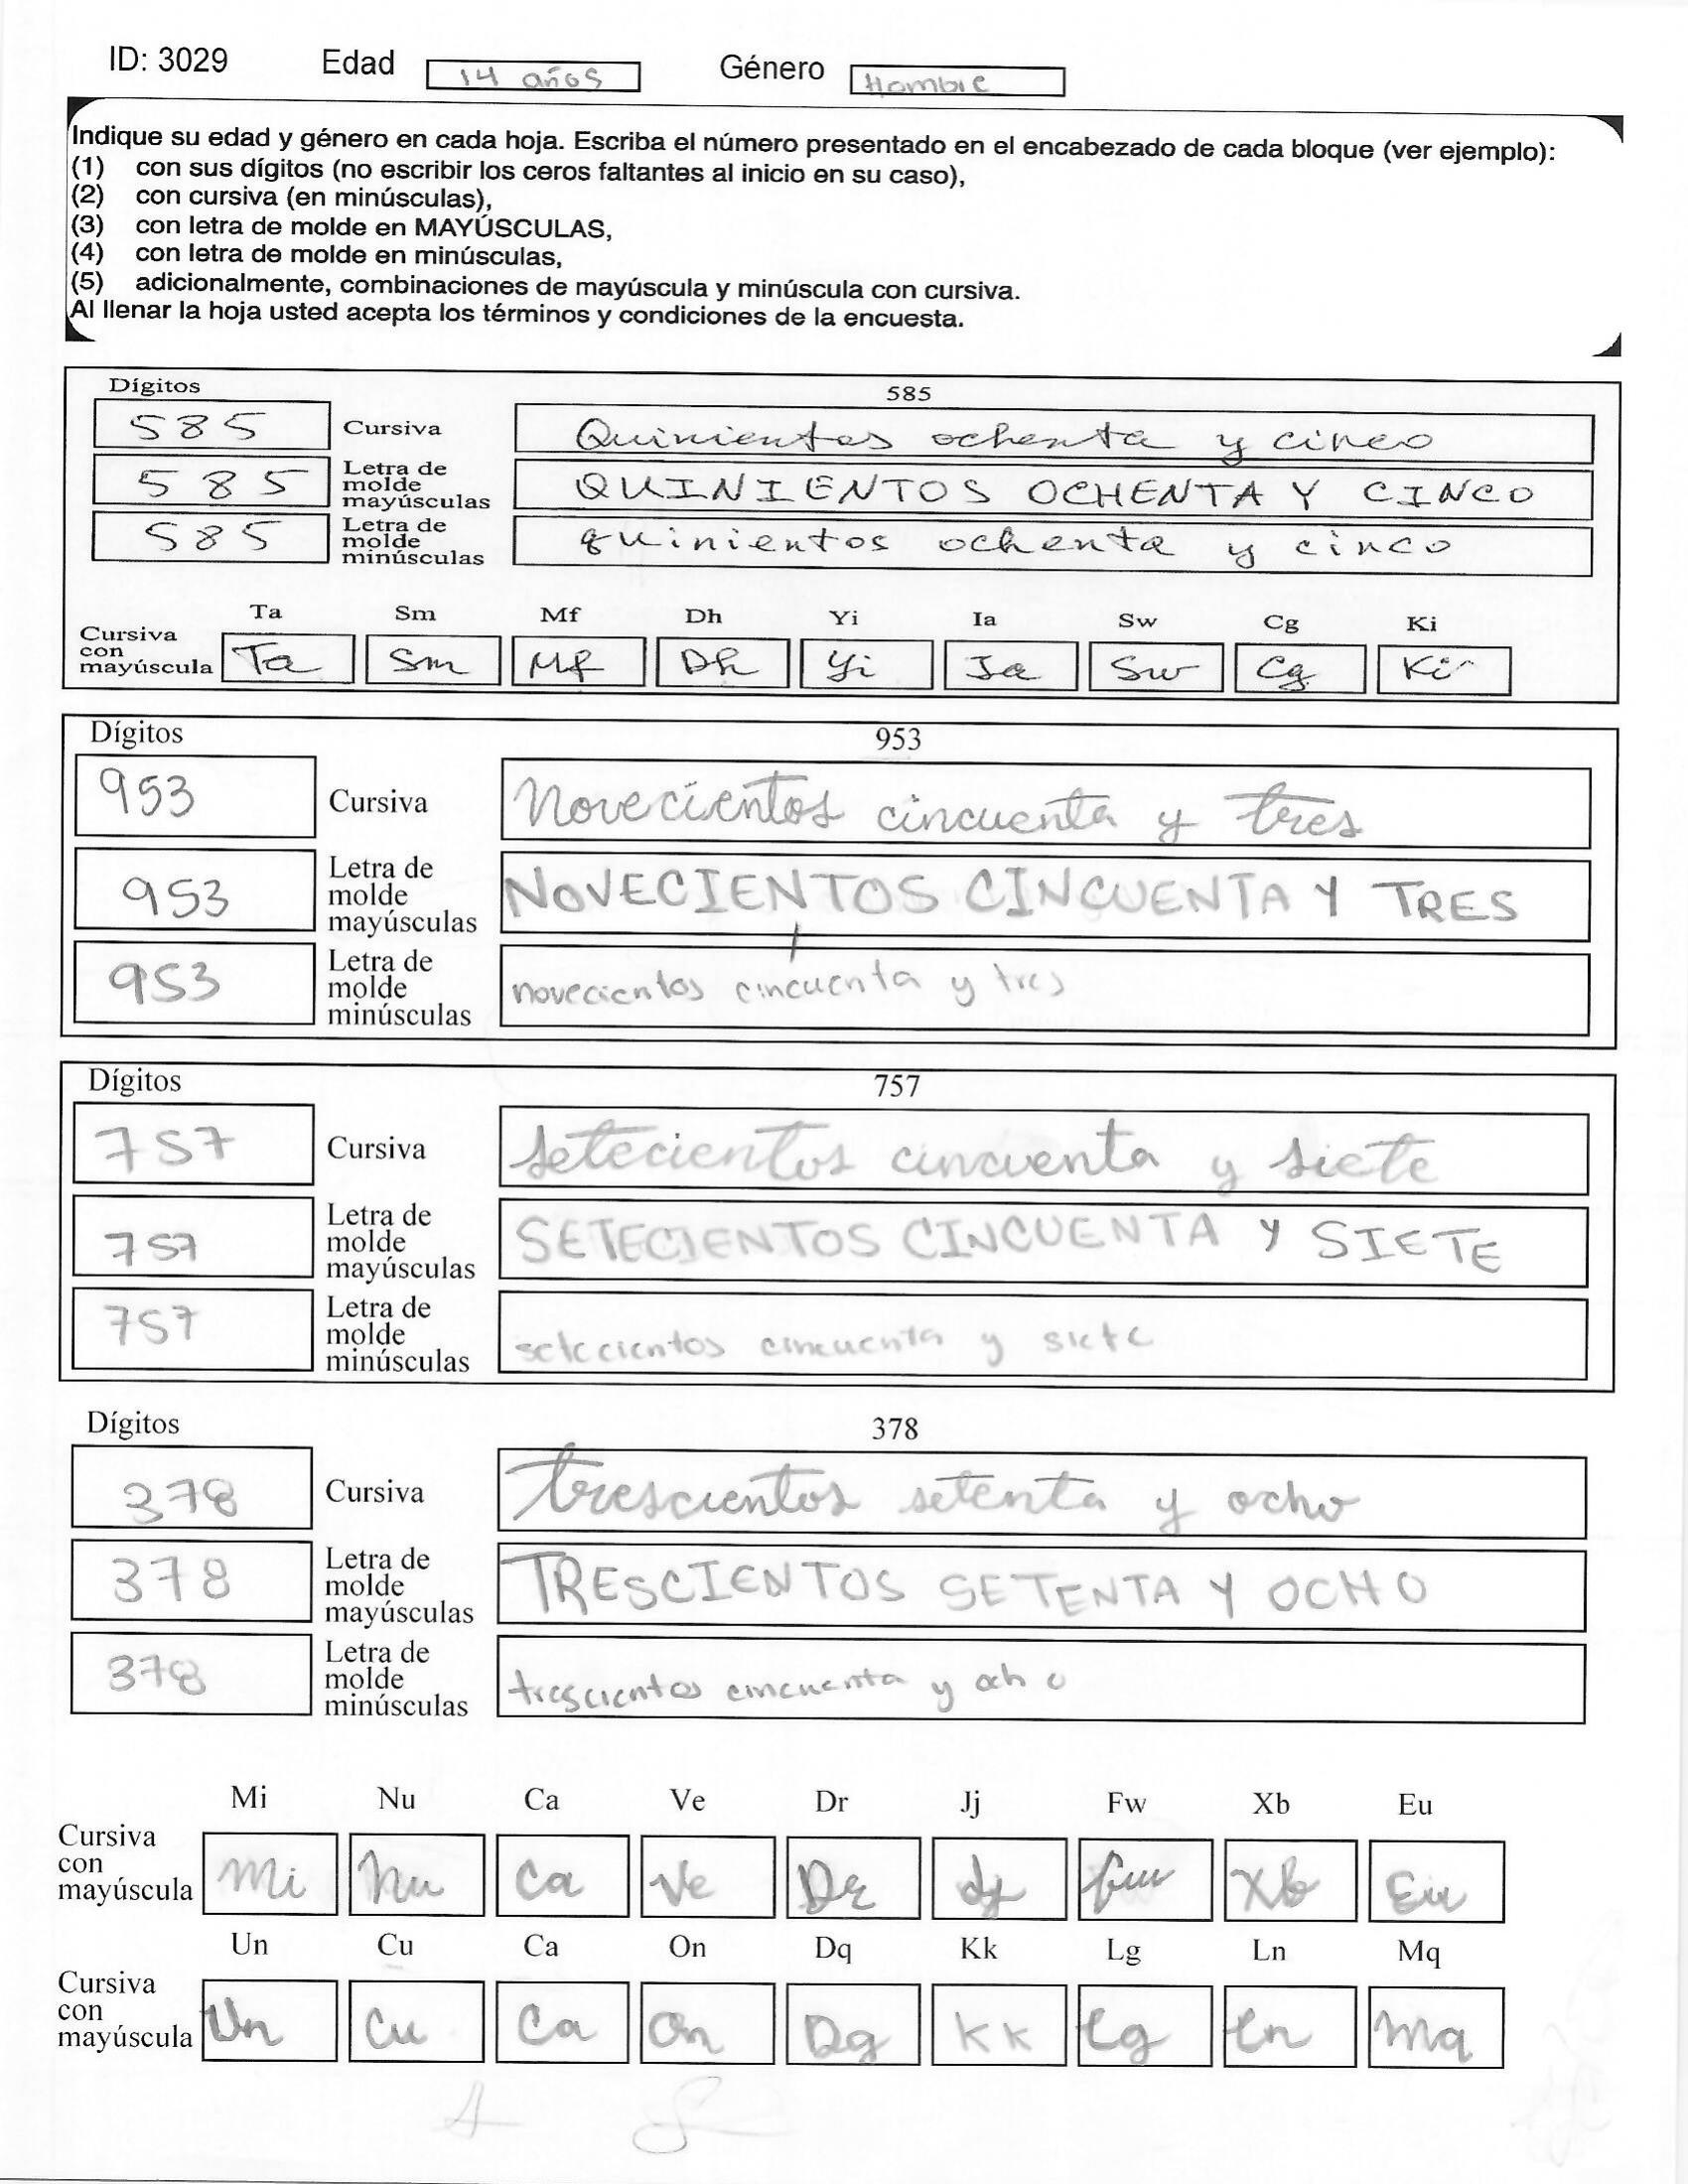 ID: 3029 Edad 14 años Género Hombre
Indique su edad y género en cada hoja. Escriba el número presentado en el encabezado de cada bloque (ver ejemplo):
(1) con sus dígitos (no escribir los ceros faltantes al inicio en su caso),
(2) con cursiva (en minúsculas),
(3) con letra de molde en MAYÚSCULAS,
(4) con letra de molde en minúsculas,
(5) adicionalmente, combinaciones de mayúscula y minúscula con cursiva.
Al llenar la hoja usted acepta los términos y condiciones de la encuesta.
Dígitos 585
585 Cursiva Quinientos ochenta y cinco
585 Letra de molde mayúsculas QUINIENTOS OCHENTA Y CINCO
585 Letra de molde minúsculas quinientos ochenta y cinco
Ta Sm Mf Dh Yi Ia Sw Cg Ki
Cursiva con mayúscula Ta Sm Mf Dh Yi Ia Sw Cg Ki
Dígitos 953
953 Cursiva Novecientos cincuenta y tres
953 Letra de molde mayúsculas NOVECIENTOS CINCUENTA Y TRES
953 Letra de molde minúsculas novecientos cincuenta y tres
Dígitos 757
757 Cursiva setecientos cincuenta y siete
757 Letra de molde mayúsculas SETECIENTOS CINCUENTA Y SIETE
757 Letra de molde minúsculas setecientos cincuenta y siete
Dígitos 378
378 Cursiva trescientos setenta y ocho
378 Letra de molde mayúsculas TRESCIENTOS SETENTA Y OCHO
378 Letra de molde minúsculas trescientos cincuenta y ocho
Mi Nu Ca Ve Dr Jj Fw Xb Eu
Cursiva con mayúscula Mi Nu Ca Ve Dr Jj Fw Xb Eu
Un Cu Ca On Dq Kk Lg Ln Mq
Cursiva con mayúscula Un Cu Ca On Dq Kk Lg Ln Mq